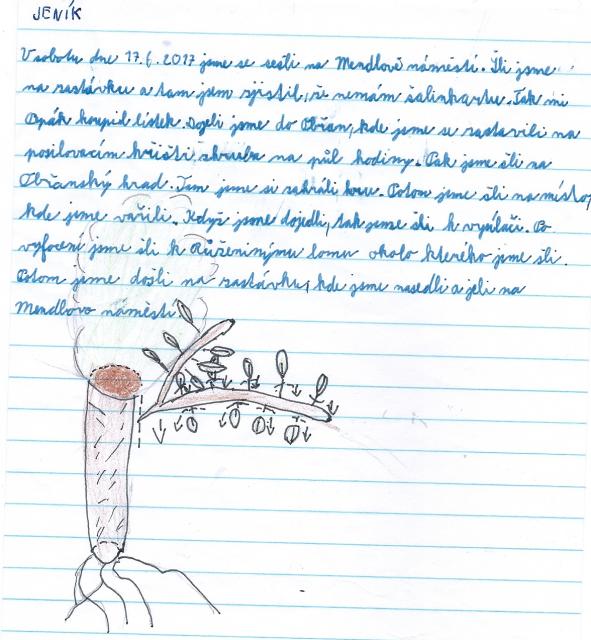 JENÍK
V sobotu dne 17.6.2017 jsme se sešli na Mendlově náměstí. Šli jsme
na zastávku a tam jsem zjistil, že nemám šalinkartu. Tak mi
Opák koupil lístek. Dojeli jsme do Obřan, kde jsme se zastavili na
posilovacím hřišti zhruba na půl hodiny. Pak jsme šli na
Obřanský hrad. Tam jsme si zahráli hru. Potom jsme šli na místo,
kde jsme vařili. Když jsme dojedli, tak jsme šli k vysílači. Po
vyfocení jsme šli k Růženinýmu lomu okolo kterého jsme šli.
Potom jsme došli na zastávku, kde jsme nasedli a jeli na
Mendlovo náměstí.